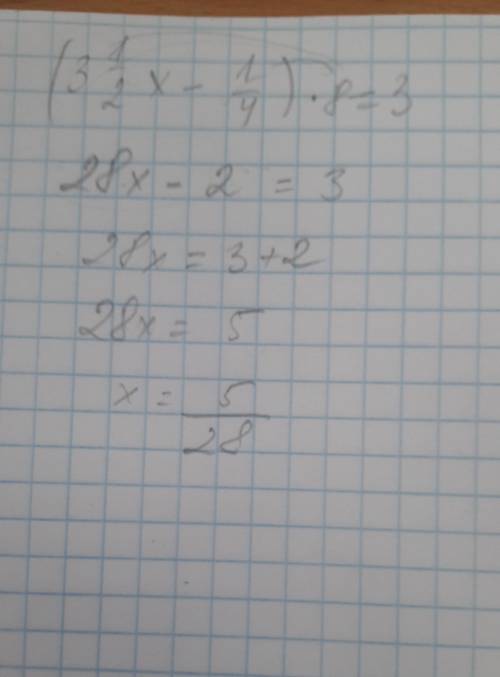 (3 1/2 x - 1/4) · 8 = 3
28x - 2 = 3
28x = 3 + 2
28x = 5
x = 5/28